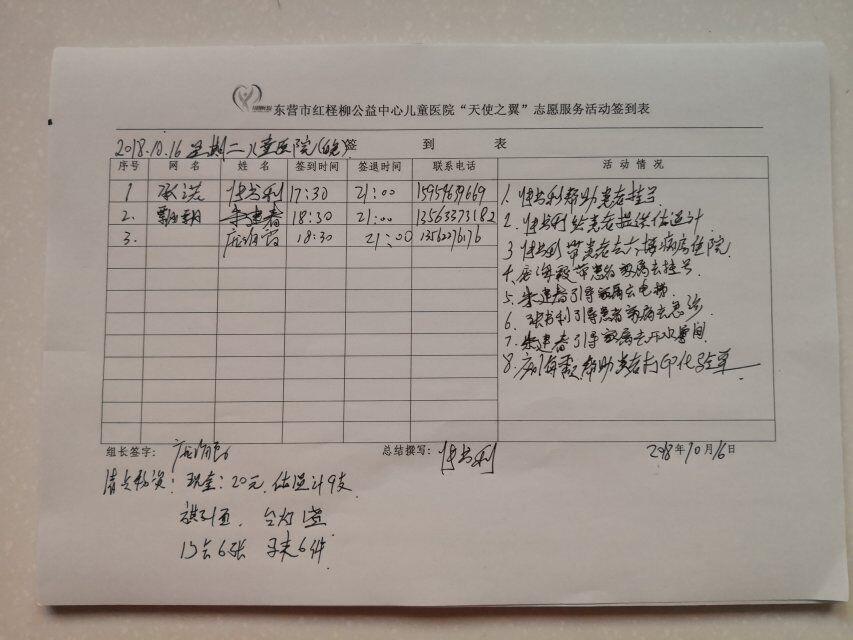 东营市红柽柳公益中心儿童医院“天使之翼”志愿服务活动签到表
2018.10.16 星期二儿童医院(晚) 签 到 表
序号 网 名 姓 名 签到时间 签退时间 联系电话 活 动 情 况
1 承诺 张书利 17:30 21:00 15954639669
2. 朱建春 18:30 21:00 13563373182
3. 18:30 21:00 13562276176
1. 张书利帮助患者挂号
2. 张书利给患者提供体温计
3 张书利带患者去六楼病房住院
4. 带患者家属去挂号
5. 朱建春引导家属去电梯
6. 张书利引导患者家属去急诊
7. 朱建春引导家属去开水房间
8. 帮助患者打印化验单
组长签字: 总结撰写: 张书利 2018年10月16日
清点物资: 现金: 20元. 体温计9支
旗1面. 台灯1盏
6张 马夹6件